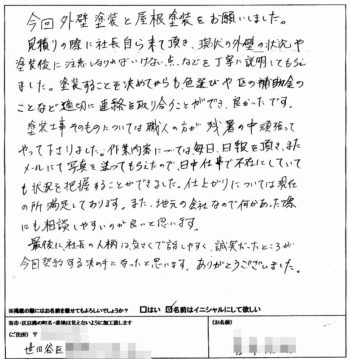 今回外壁塗装と屋根塗装をお願いしました。
見積りの際に社長自ら来て頂き、現状の外壁の状況や
塗装後に注意しなければいけない点、などを丁寧に説明してもらい
ました。塗装することを決めてからも色選びや区の補助金の
ことなど適切に連絡を取り合うことができ、良かったです。
塗装工事そのものについては職人の方が残暑の中頑張って
やって下さりました。作業内容については毎日、日報を頂き、また
メールにて写真を送ってもらたので、日中仕事で不在にしていて
も状況を把握することができました。仕上がりについては現在
の所満足しております。また、地元の会社なので何かあった際
にも相談しやすいのが良いと思います。
最後に、社長の人柄は気さくで話しやすく、誠実だったところが
今回契約する決め手になったと思います。ありがとうございました。
※掲載の際にはお名前を載せてもよろしいでしょうか? □はい ☑名前はイニシャルにして欲しい
(ご住所)〒
(お名前)
世田谷区